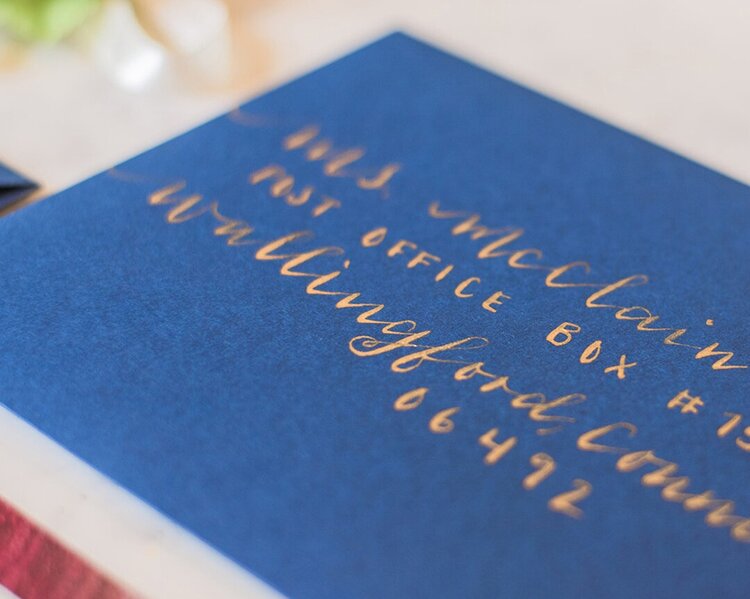 Ms. McClain
POST OFFICE BOX #
Wallingford, Conn
06492